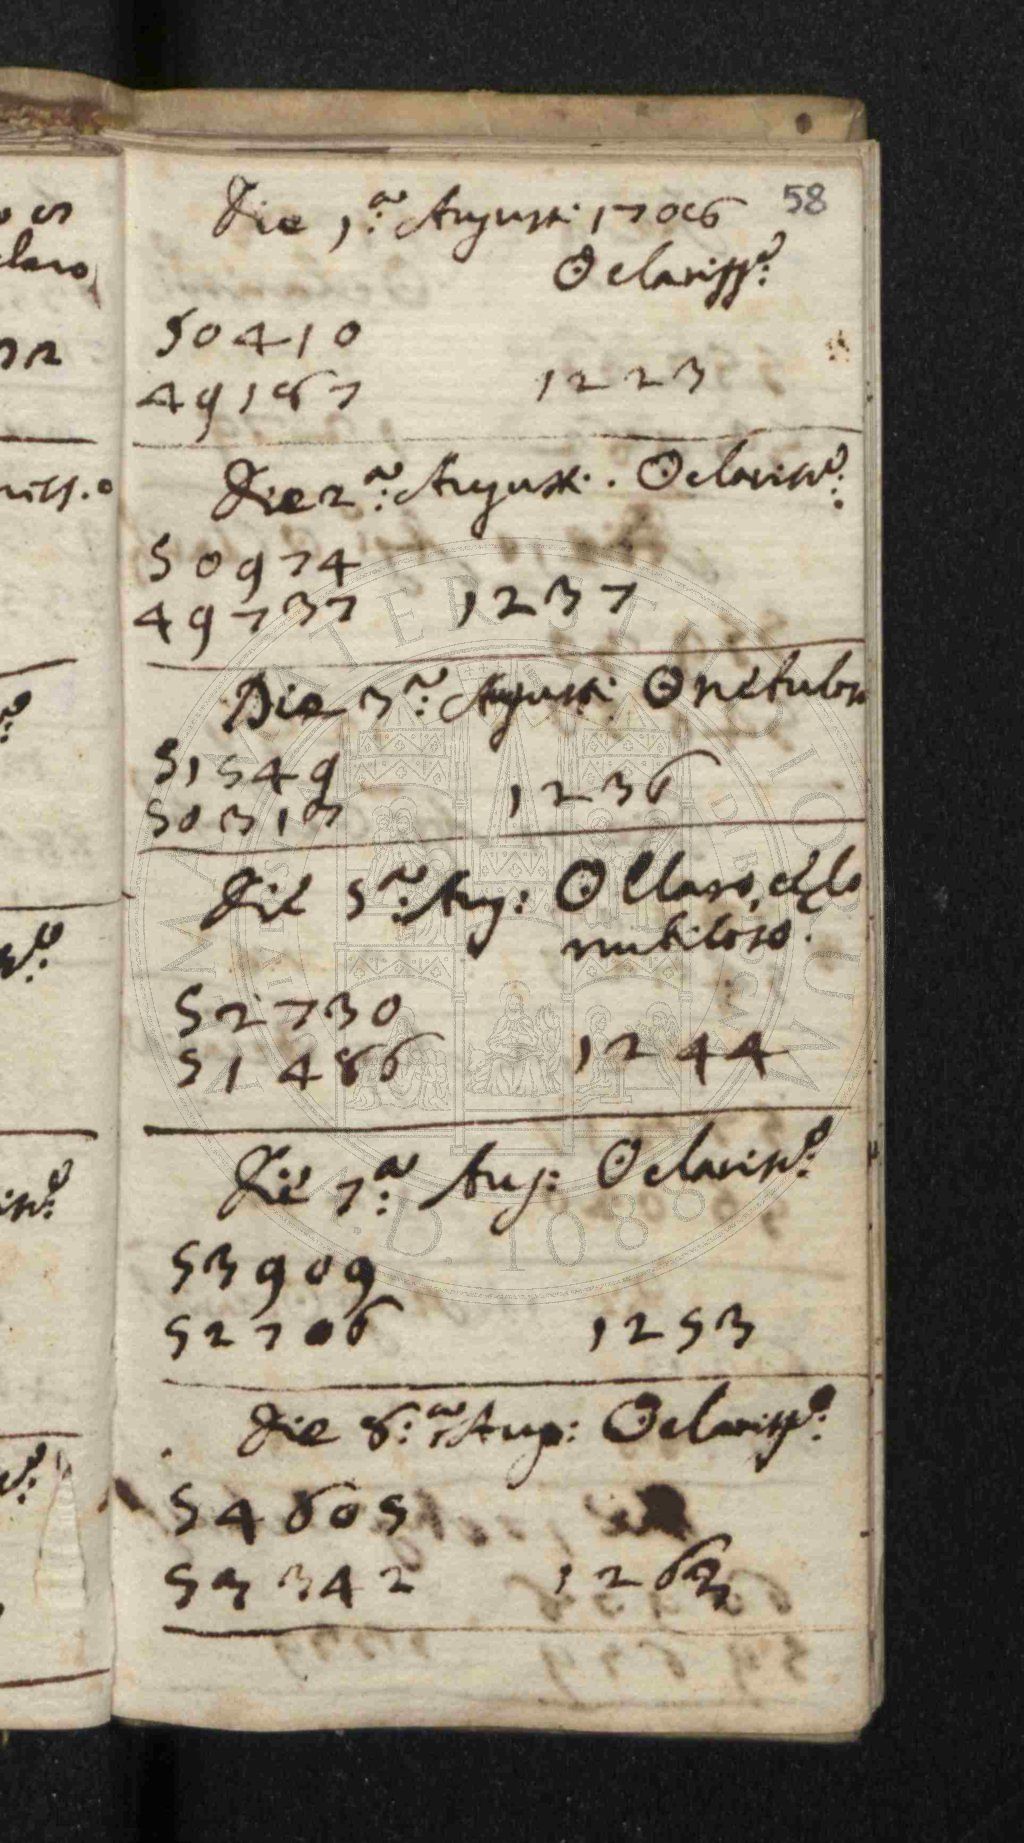 58
Die 1.ª Augusti 1706
☉ clariss.º
50410
49187 1223
Die 2.ª Augusti. ☉ clariss.º
50974
49737 1237
Die 3.ª Augusti ☉ nebuloso
51549
50313 1236
Die 5.ª Aug: ☉ Claro, cielo
nubiloso.
52730
51486 1244
Die 7.ª Aug: ☉ clariss.º
53909
52706 1253
Die 8.ª Aug: ☉ clariss.º
54605
53342 1263
ALMA MATER STUDIORUM
A.D. 1088